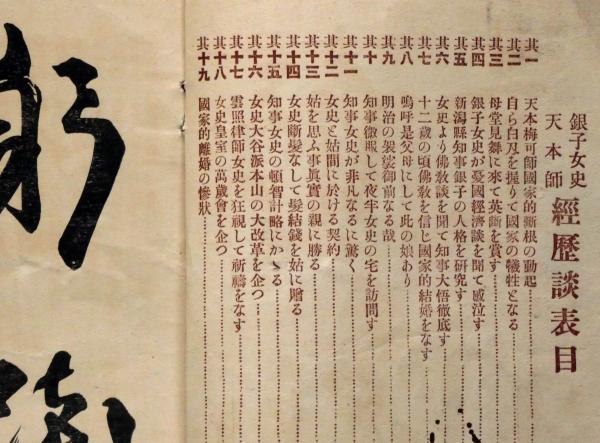 銀子女史
天本師
經歷談表目
其一 天本梅可師國家的斷根の動起
其二 自ら白刃を握りて國家の犧牲となる
其三 母堂見舞に來て英斷を賞す
其四 銀子女史が憂國經濟談を聞て感泣す
其五 新潟縣知事銀子の人格を研究す
其六 女史より佛敎談を聞て知事大悟徹底す
其七 十二歲の頃佛敎を信じ國家的結婚をなす
其八 嗚呼是父母にして此の娘あり
其九 明治の袈裟御前なる哉
其十 知事微服して夜半女史の宅を訪問す
其十一 知事女史が非凡なるに驚く
其十二 女史と姑間に於ける契約
其十三 姑を思ふ事眞實の親に勝る
其十四 女史斷髮なして髮結錢を姑に贈る
其十五 知事女史の頓智計略にかゝる
其十六 女史大谷派本山の大改革を企つ
其十七 雲照律師女史を狂視して祈禱をなす
其十八 女史皇室の萬歲會を企つ
其十九 國家的離婚の慘狀
躬